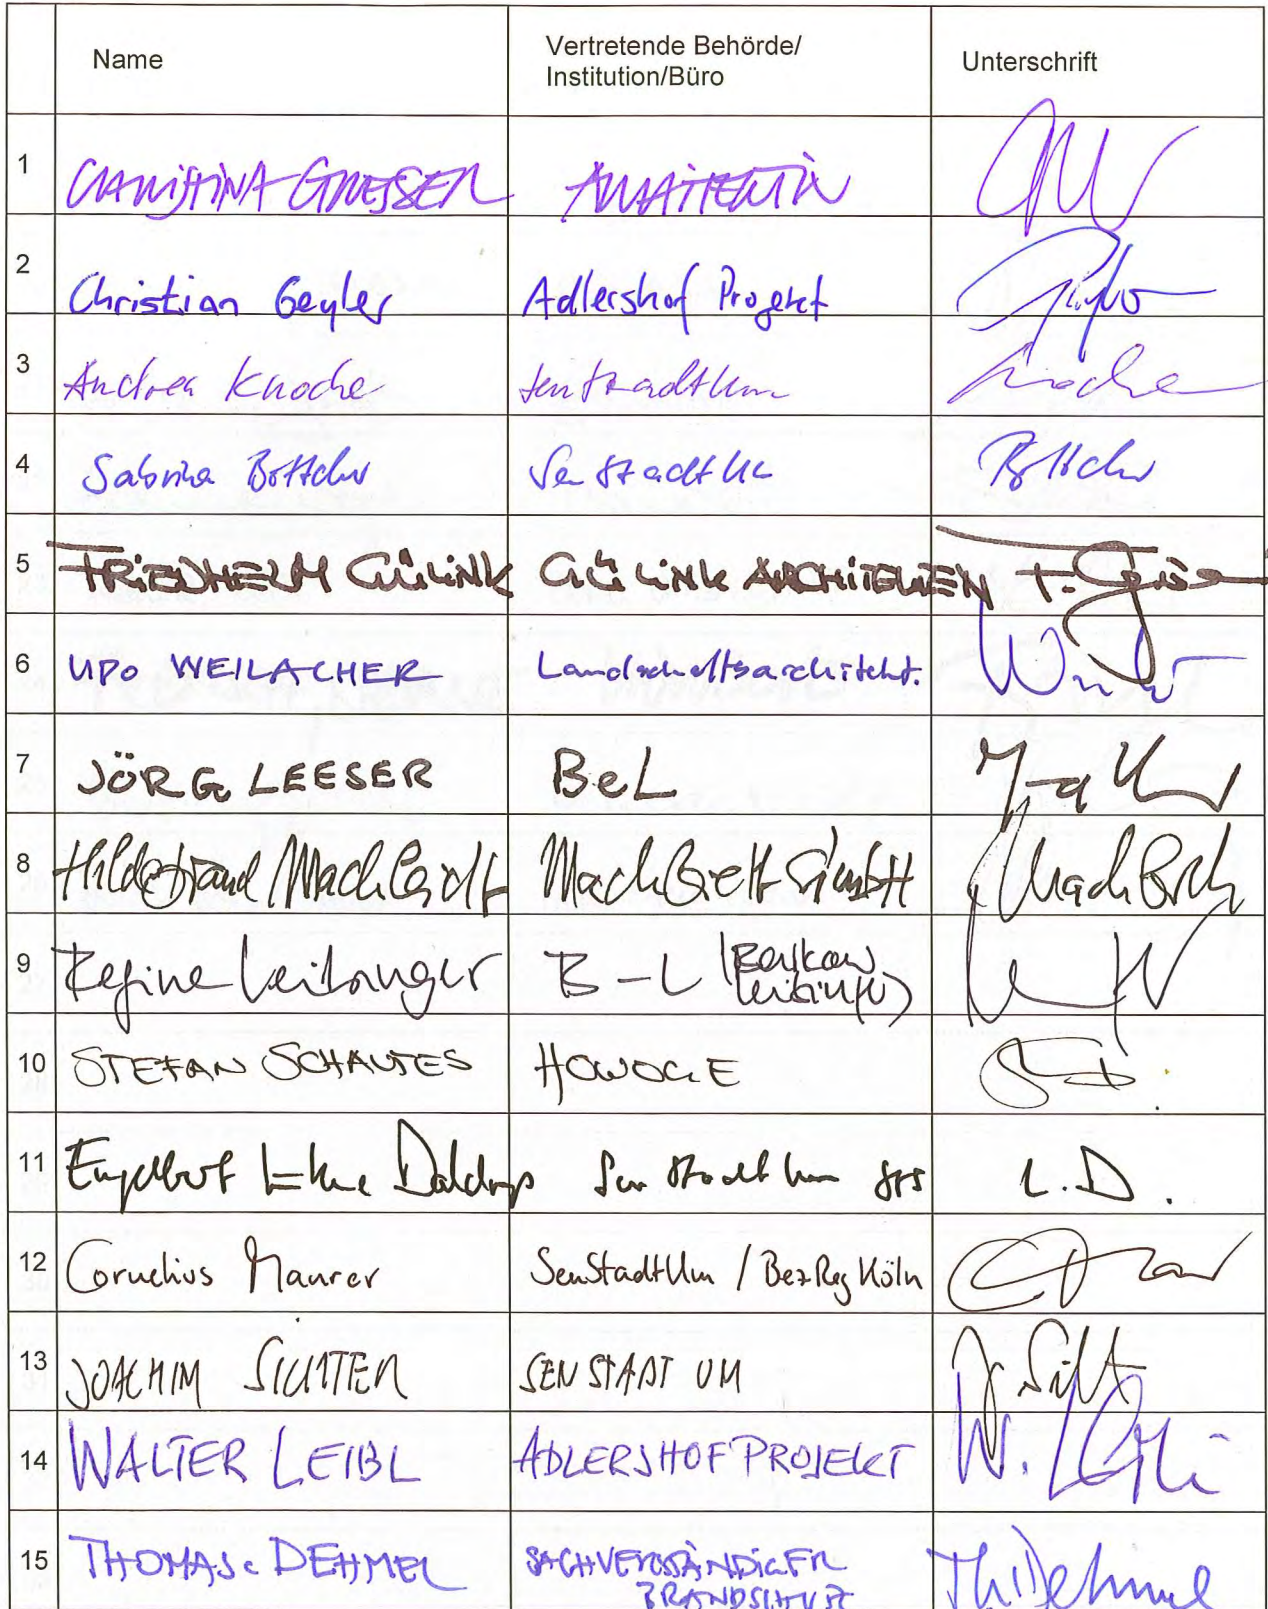 Name Vertretende Behörde/ Unterschrift
Institution/Büro
1 CHRISTINA GRESSER ARCHITEKTIN
2 Christian Geyler Adlershof Projekt
3 Andrea Knoche SenStadtUm Knoche
4 Sabrina Böttcher SenStadtUm Böttcher
5 FRIEDHELM GÜLINK GÜLINK ARCHITEKTEN F.
6 UDO WEILACHER Landschaftsarchitekt.
7 JÖRG LEESER BeL
8 Hildebrand Machleidt Machleidt GmbH Machleidt
9 Regine Leibinger B-L (Barkow
Leibinger)
10 STEFAN SCHAUTES HOWOGE
11 Engelbert Lütke Daldrup SenStadtUm StS L.D.
12 Cornelius Maurer SenStadtUm / BezReg Köln
13 JOACHIM SICHTER SENSTADT UM
14 WALTER LEIBL ADLERSHOF PROJEKT W. Leibl
15 THOMAS DEHMEL SACHVERSTÄNDIGER Th. Dehmel
BRANDSCHUTZ